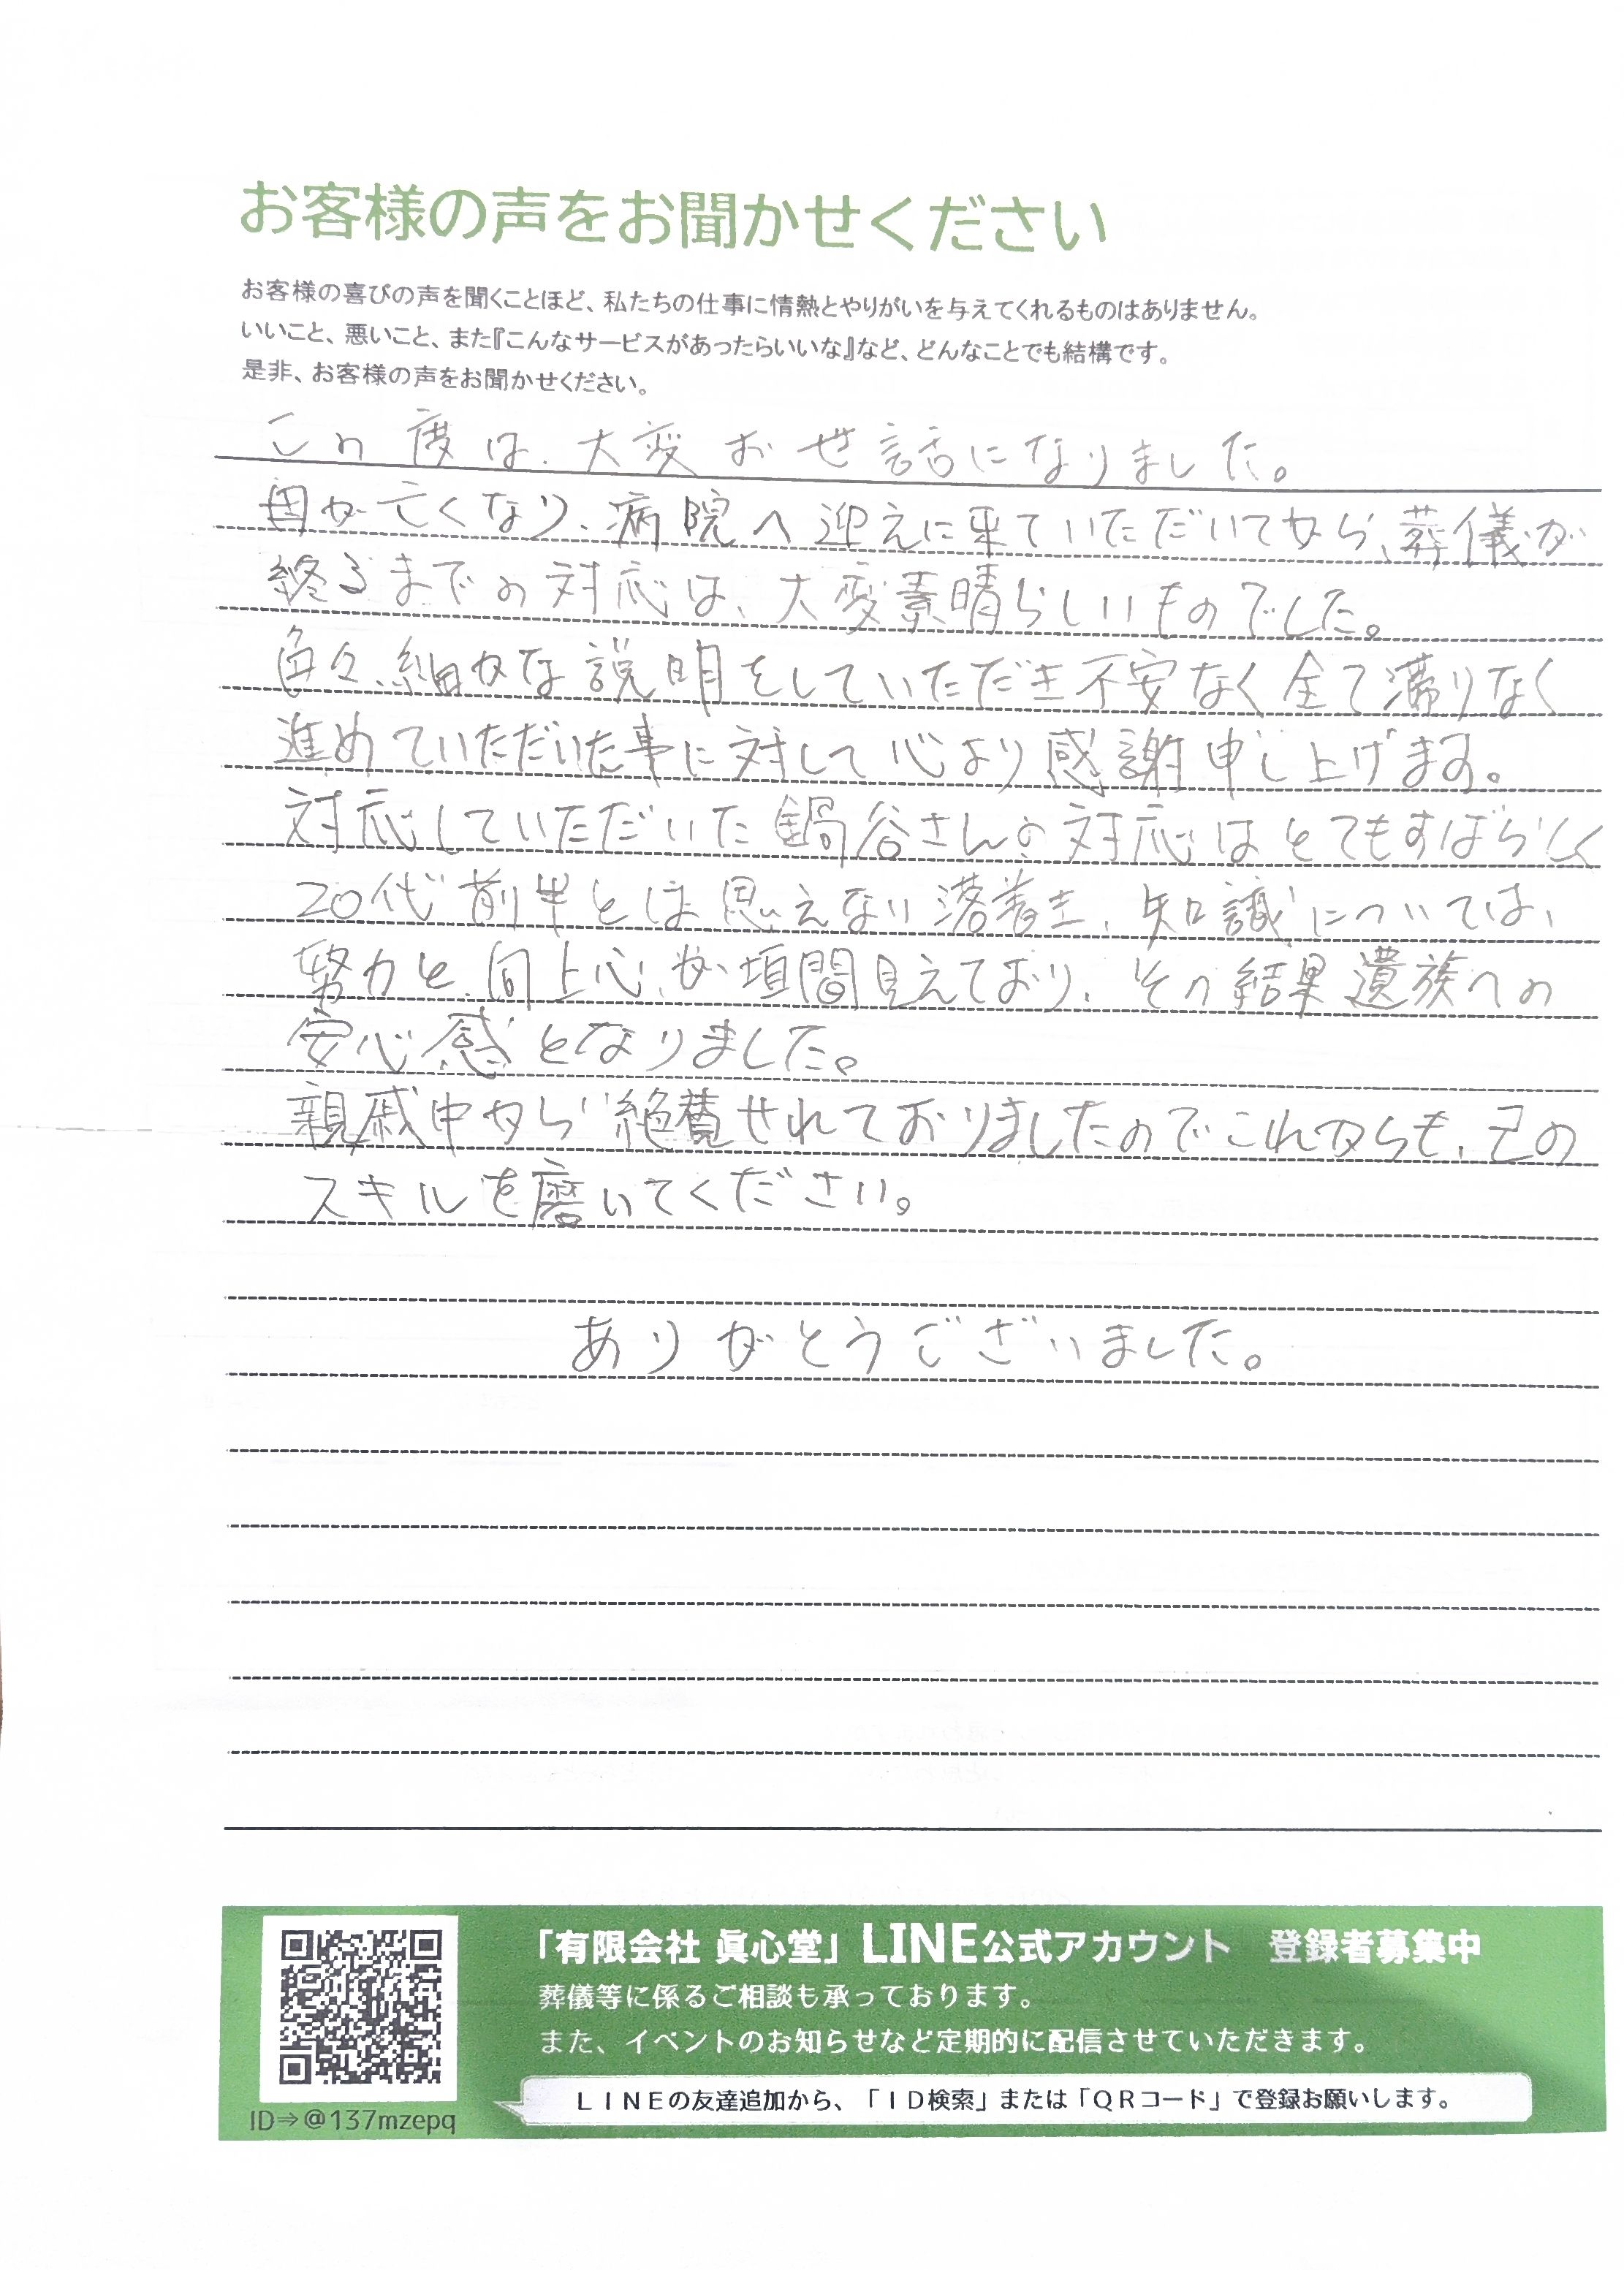 お客様の声をお聞かせください
お客様の喜びの声を聞くことほど、私たちの仕事に情熱とやりがいを与えてくれるものはありません。
いいこと、悪いこと、また『こんなサービスがあったらいいな』など、どんなことでも結構です。
是非、お客様の声をお聞かせください。
この度は、大変お世話になりました。
母が亡くなり、病院へ迎えに来ていただいてから、葬儀が
終るまでの対応は、大変素晴らしいものでした。
色々、細かな説明をしていただき不安なく全て滞りなく
進めていただいた事に対して心より感謝申し上げます。
対応していただいた鍋谷さんの対応はとてもすばらしく
20代前半とは思えない落着き、知識については、
努力と向上心が垣間見えており、その結果遺族への
安心感となりました。
親戚中から絶賛せれておりましたのでこれからも、己の
スキルを磨いてください。
ありがとうございました。
「有限会社 眞心堂」LINE公式アカウント 登録者募集中
葬儀等に係るご相談も承っております。
また、イベントのお知らせなど定期的に配信させていただきます。
LINEの友達追加から、「ID検索」または「QRコード」で登録お願いします。
ID⇒@137mzepq